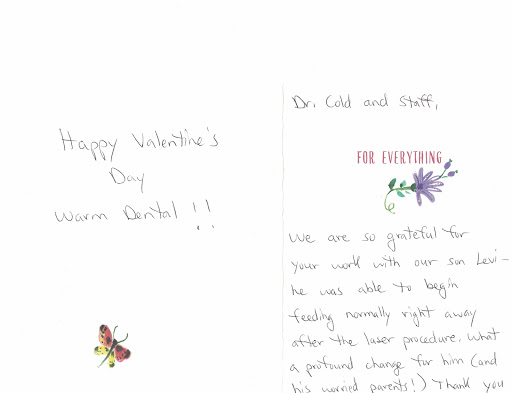 Happy Valentine's
Day
Warm Dental !!
Dr. Cold and Staff,
FOR EVERYTHING
We are so grateful for
your work with our son Levi –
he was able to begin
feeding normally right away
after the laser procedure. What
a profound change for him (and
his worried parents!) Thank you